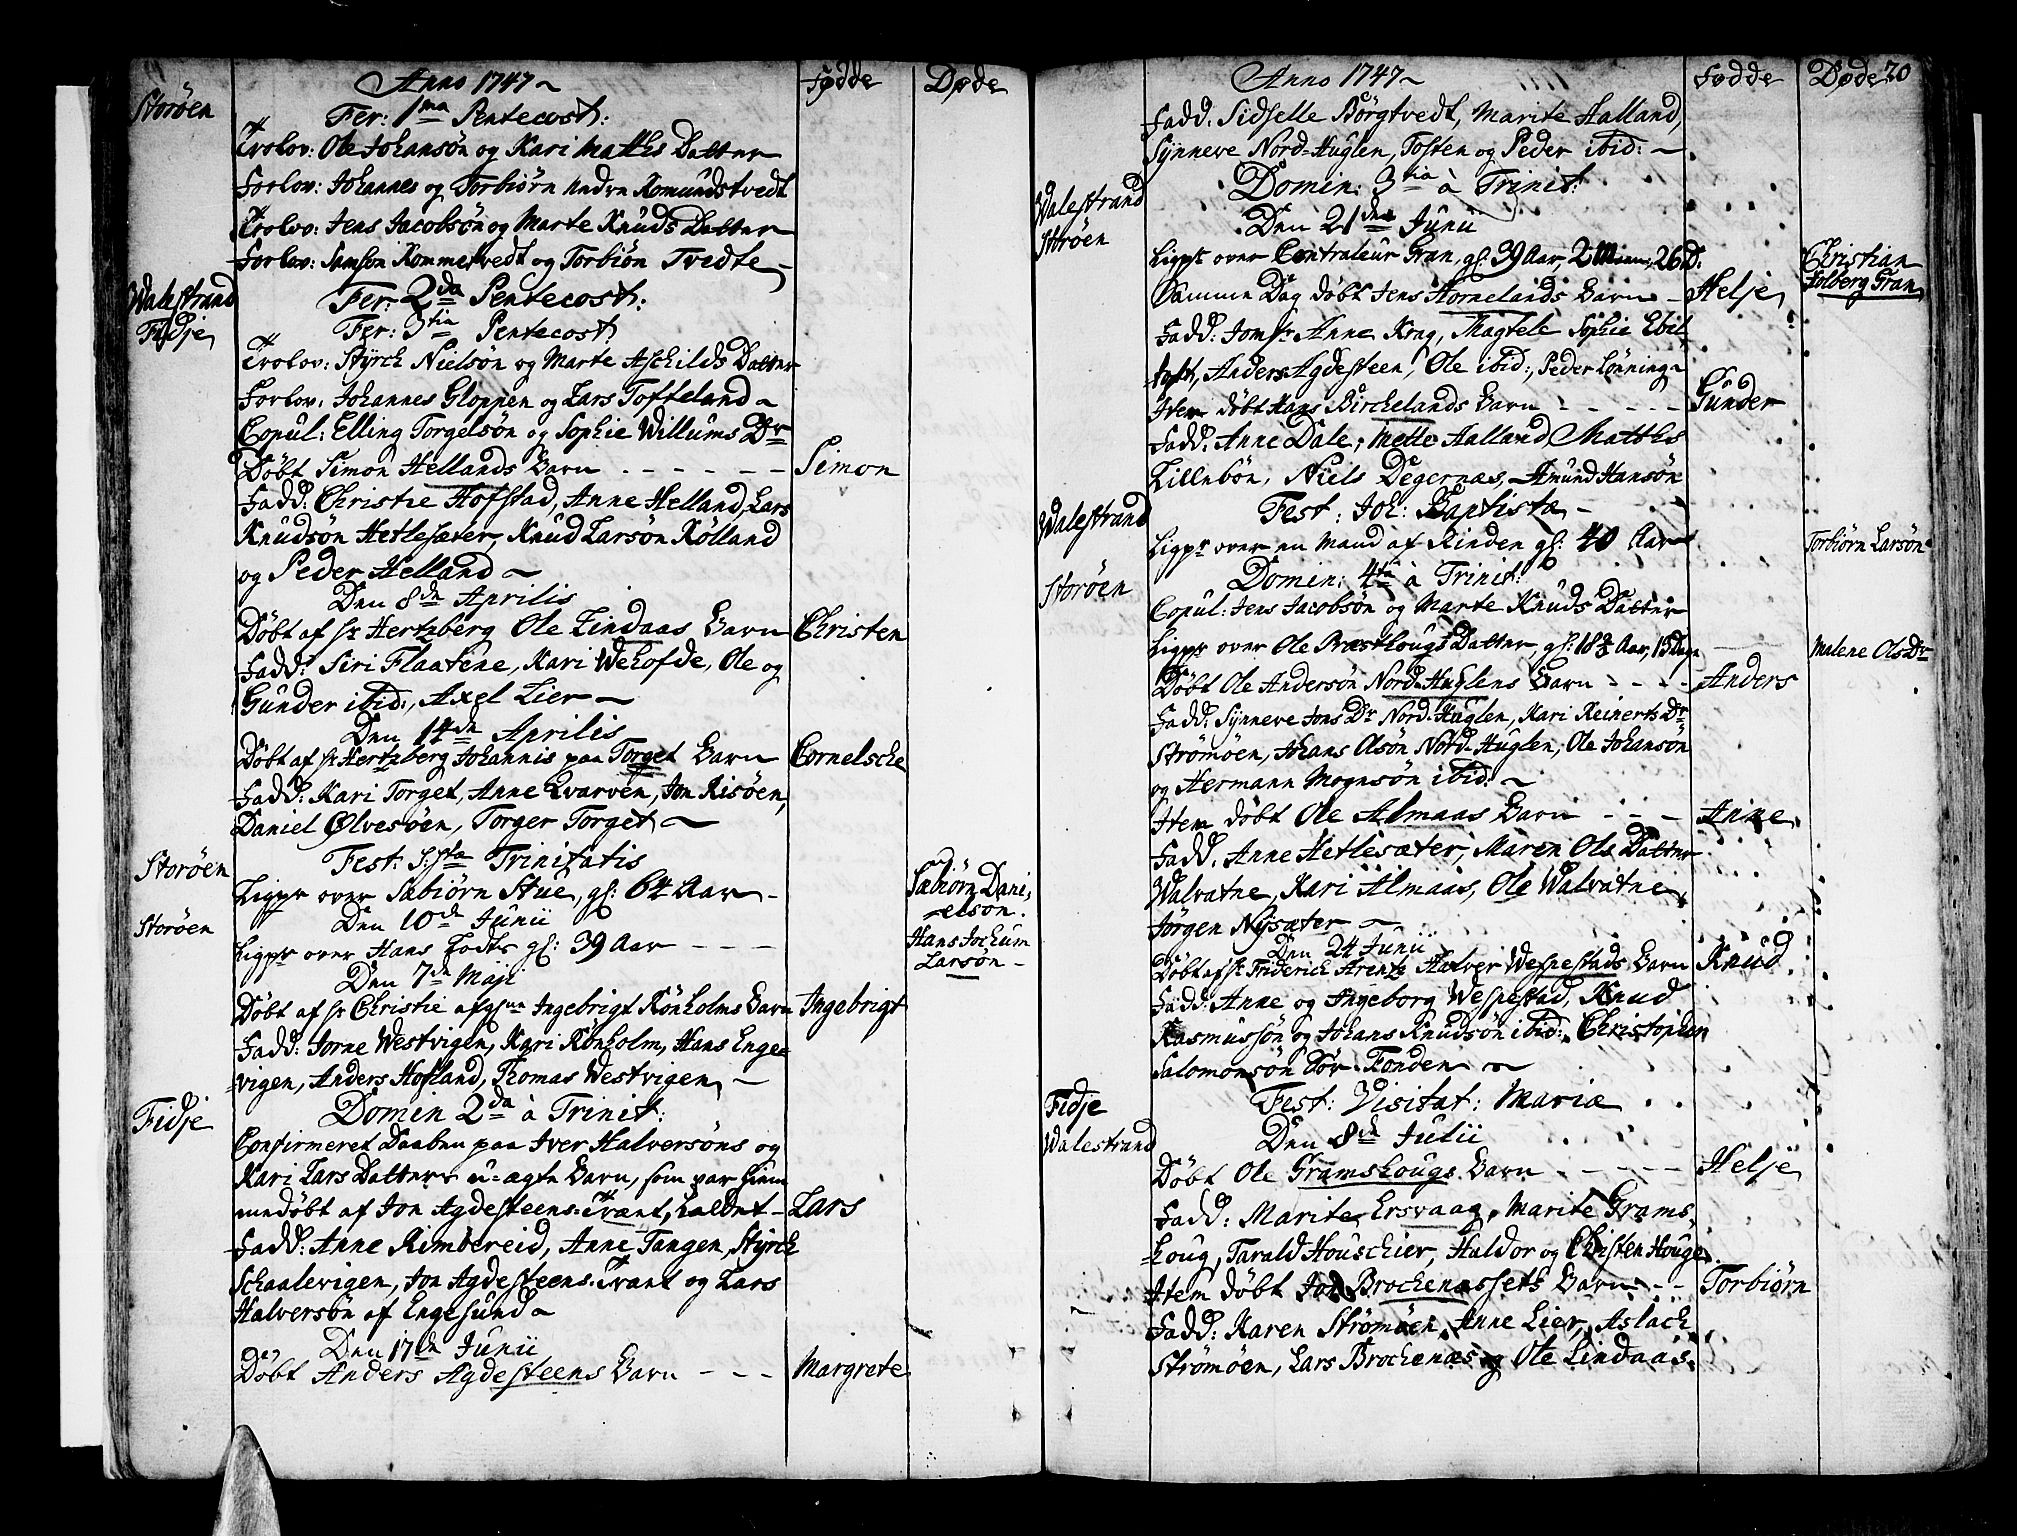 Anno 1747
Fødde
Døde
Storøen
Fer: 1ma Pentecost:
Trolov: Ole Johansøn og Kari Matthis Datter
Forlov: Johannes og Torbiørn nedre Romundstvedt
Trolov: Jens Jacobsøn og Marte Knuds Datter
Forlov: Samson Kommetvedt og Torbiøn Tvedte
Walestrand
Fer: 2da Pentecost:
Fidje
Fer: 3tia Pentecost:
Trolov: Styrck Nielsøn og Marte Aschilds Datter
Forlov: Johannes Gloppen og Lars Toffeland
Copul: Elling Torgelsøn og Sophie Willums Dr
Døbt Simon Hellands Barn - - - - - Simon
Fadd: Christie Hofstad, Anne Helland, Lars
Knudsøn Hetlesæter, Knud Larsøn Kølland
og Peder Helland
Den 8de Aprilis
Døbt af Hr Hertzberg Ole Lindaas Barn Christen
Fadd: Siri Flaatene, Kari Wehofde, Ole og
Gunder ibid:, Axel Lier
Den 14de Aprilis
Døbt af Hr Hertzberg Johannis paa Torget Barn Cornelsche
Fadd: Kari Torget, Anne Qvarven, Jon Risøen,
Daniel Ølvesøen, Torger Torget
Storøen
Fest: S:sta Trinitatis
Ligpr over Sabiørn Stue, gl: 64 Aar - Sæbiørn Dani-
elsøn.
Storøen
Den 10de Junii
Ligpr over Hans Lodts gl: 39 Aar - - - Hans Jochum
Larsøn -
Den 7de Maji
Døbt af Hr Christie afgl:ne Ingebrigt Rönholms Barn Ingebrigt
Fadd: Jorne Westvigen, Kari Rönholm, Hans Enge-
vigen, Anders Hofland, Thomas Westvigen
Fidje
Domin 2da à Trinit:
Confirmeret Daaben paa Iver Halversøns og
Kari Lars Datters u-ægte Barn, som var hiem-
medøbt af Jon Agdesteens-Trant, kaldet - Lars
Fadd: Anne Rimbereid, Anne Tangen, Styrck
Schaalevigen, Jon Agdesteens-Trant og Lars
Halversøn af Engesund
Den 17de Junii
Døbt Anders Agdesteens Barn - - - Margrete
Anno 1747
Fødde
Døde 20
Fadd: Sidselle Börgtvedt, Marite Halland,
Synneve Nord-Huglen, Tosten og Peder ibid:
Walestrand
Domin: 3tia à Trinit:
Storøen
Den 21de Junii
Ligpr over Contraleur Gran, gl: 39 Aar, 2 Maan: 26 D: Christian
Folberg Gran
Samme Dag døbt Jens Hornelands Barn - Helje
Fadd: Jomfr Anne Krag, Magtele Sophie Ebil-
toft, Anders Agdesteen, Ole ibid:, Peder Lønning
Item døbt Hans Birchelands Barn - - - - - Gunder
Fadd: Anne Dale, Mette Aalland, Matthis
Lillebøn, Niels Degernæs, Amund Hansøn
Walestrand
Fest: Joh: Baptistæ
Ligpr over en Mand af Rinden gl: 40 Aar Torbiørn Larsøn
Storøen
Domin: 4ta à Trinit:
Copul: Jens Jacobsøn og Marte Knuds Datter
Ligpr over Ole Præstkougs Datter, gl: 18 Aar, 15 Dage Malene Ols Dr
Døbt Ole Andersøn Nord-Huglens Barn - - - - Anders
Fadd: Synneve Jons Dr Nord-Huglen, Kari Reinerts Dr
Strømøen, Johans Olsøn Nord-Huglen, Ole Johansøn
og Hermann Mognsøn ibid:
Item døbt Ole Almaas Barn - - - Anne
Fadd: Anne Hetlesæter, Maren Ols Datter
Walvatne, Kari Almaas, Ole Walvatne,
Jørgen Nysæter
Den 24 Junii
Døbt af Hr Friderich Arentz Halver Wespestads Barn Knud
Fadd: Anne og Ingeborg Wespestad, Knud
Rasmussøn og Johans Knudsøn ibid: Christopher
Salomonsøn Sør-Fonden
Fidje
Fest: Visitat: Mariæ
Walestrand
Den 8de Julii
Døbt Ole Gramskougs Barn - - - - - Helje
Fadd: Marite Ersvaag, Marite Grams-
koug, Tarald Houschier, Haldor og Christen Houge
Item døbt Brochenæssets Barn - - Torbiørn
Fadd: Karen Strømøen, Anne Lier, Aslach
Strömøen, Lars Brochenæs og Ole Lindaas